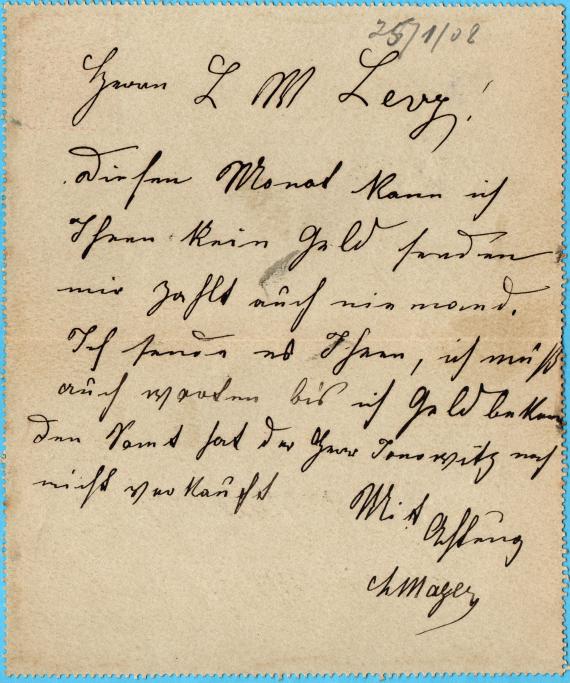 25/1/02
Herrn L M Levy!
Diesen Monat kann ich
Ihnen kein Geld senden
mir zahlt auch niemand.
Ich sende es Ihnen, ich muß
auch warten bis ich Geld bekom
Den Samt hat der Herr noch
nicht verkauft
Mit
Achtung
Mayer